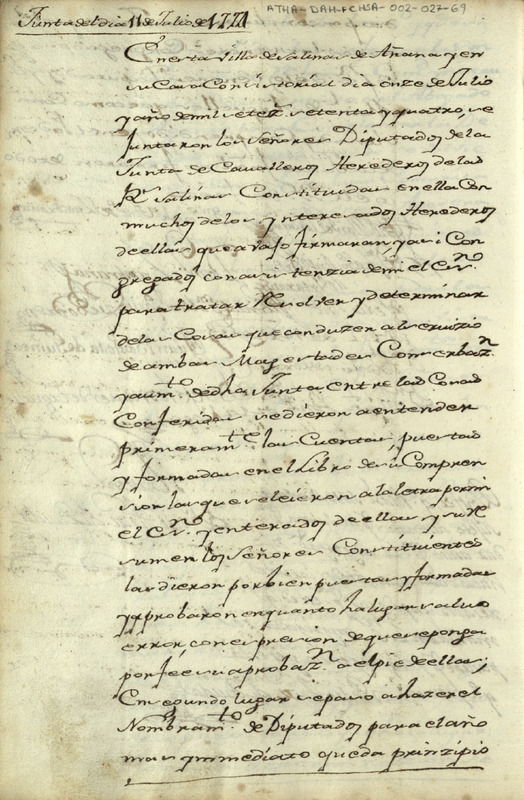 Junta del dia 11 de Julio de 1774
ATHA-DAH-FCHSA-002-027-69
En esta Villa de Salinas de Añana y en
su Casa Consistorial dia onze de Julio
y año de mil setez.s setenta y quatro, se
Juntaron los Señores Diputados de la
Junta de Cavalleros Herederos de las
R.s Salinas Constituidas en ella Con
muchos de los Ynteresados Herederos
de ellas que avajo firmaran, y asi Con
gregados con asistenzia de mi el Es.no
para tratar Resolver y determinar
de las Cosas que conduzen al serbizio
de ambas Magestades Conserbaz.n
y aum.to de dha Junta Entre las Cosas
Conferidas se dieron a entender
primeram.te las Cuentas puestas
y formadas en el Libro de su Compren
sion las que se leieron a la letra por mi
el Es.no y enterados de ellas y su Re
sumen los Señores Constituientes
las dieron por bien puestas y formadas
y aprobaron en quanto ha lugar salvo
error con espresion de que se ponga
por fee su aprobaz.n a el pie de ellas;
En segundo lugar se paso a hazer el
Nombram.to de Diputados para el año
mas ynmediato que da prinzipio